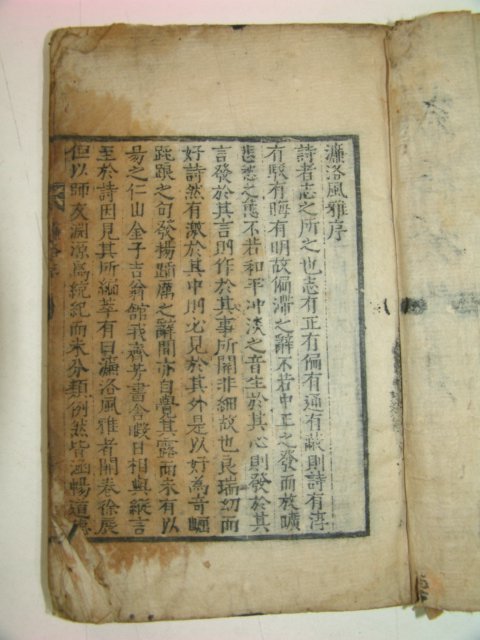 濂洛風雅序
詩者志之所之也志有正有偏有通有蔽則詩有淳
有駁有晦有明故偏滯之辭不若中正之發而放曠
悲愁之態不若和平冲淡之音生於其心則發於其
言發於其言則作於其事所關非細故也良瑞幼而
好詩然有激於其中則必見於其外是以好爲奇崛
跌踉之句發揚蹈厲之辭間亦自覺其露而未有以
易之仁山金子吉翁館我齋芳書舍暇日相與縱言
至於詩因見其所編萃有曰濂洛風雅者開卷徐展
但以師友淵源爲統紀而未分類例然皆涵暢道德